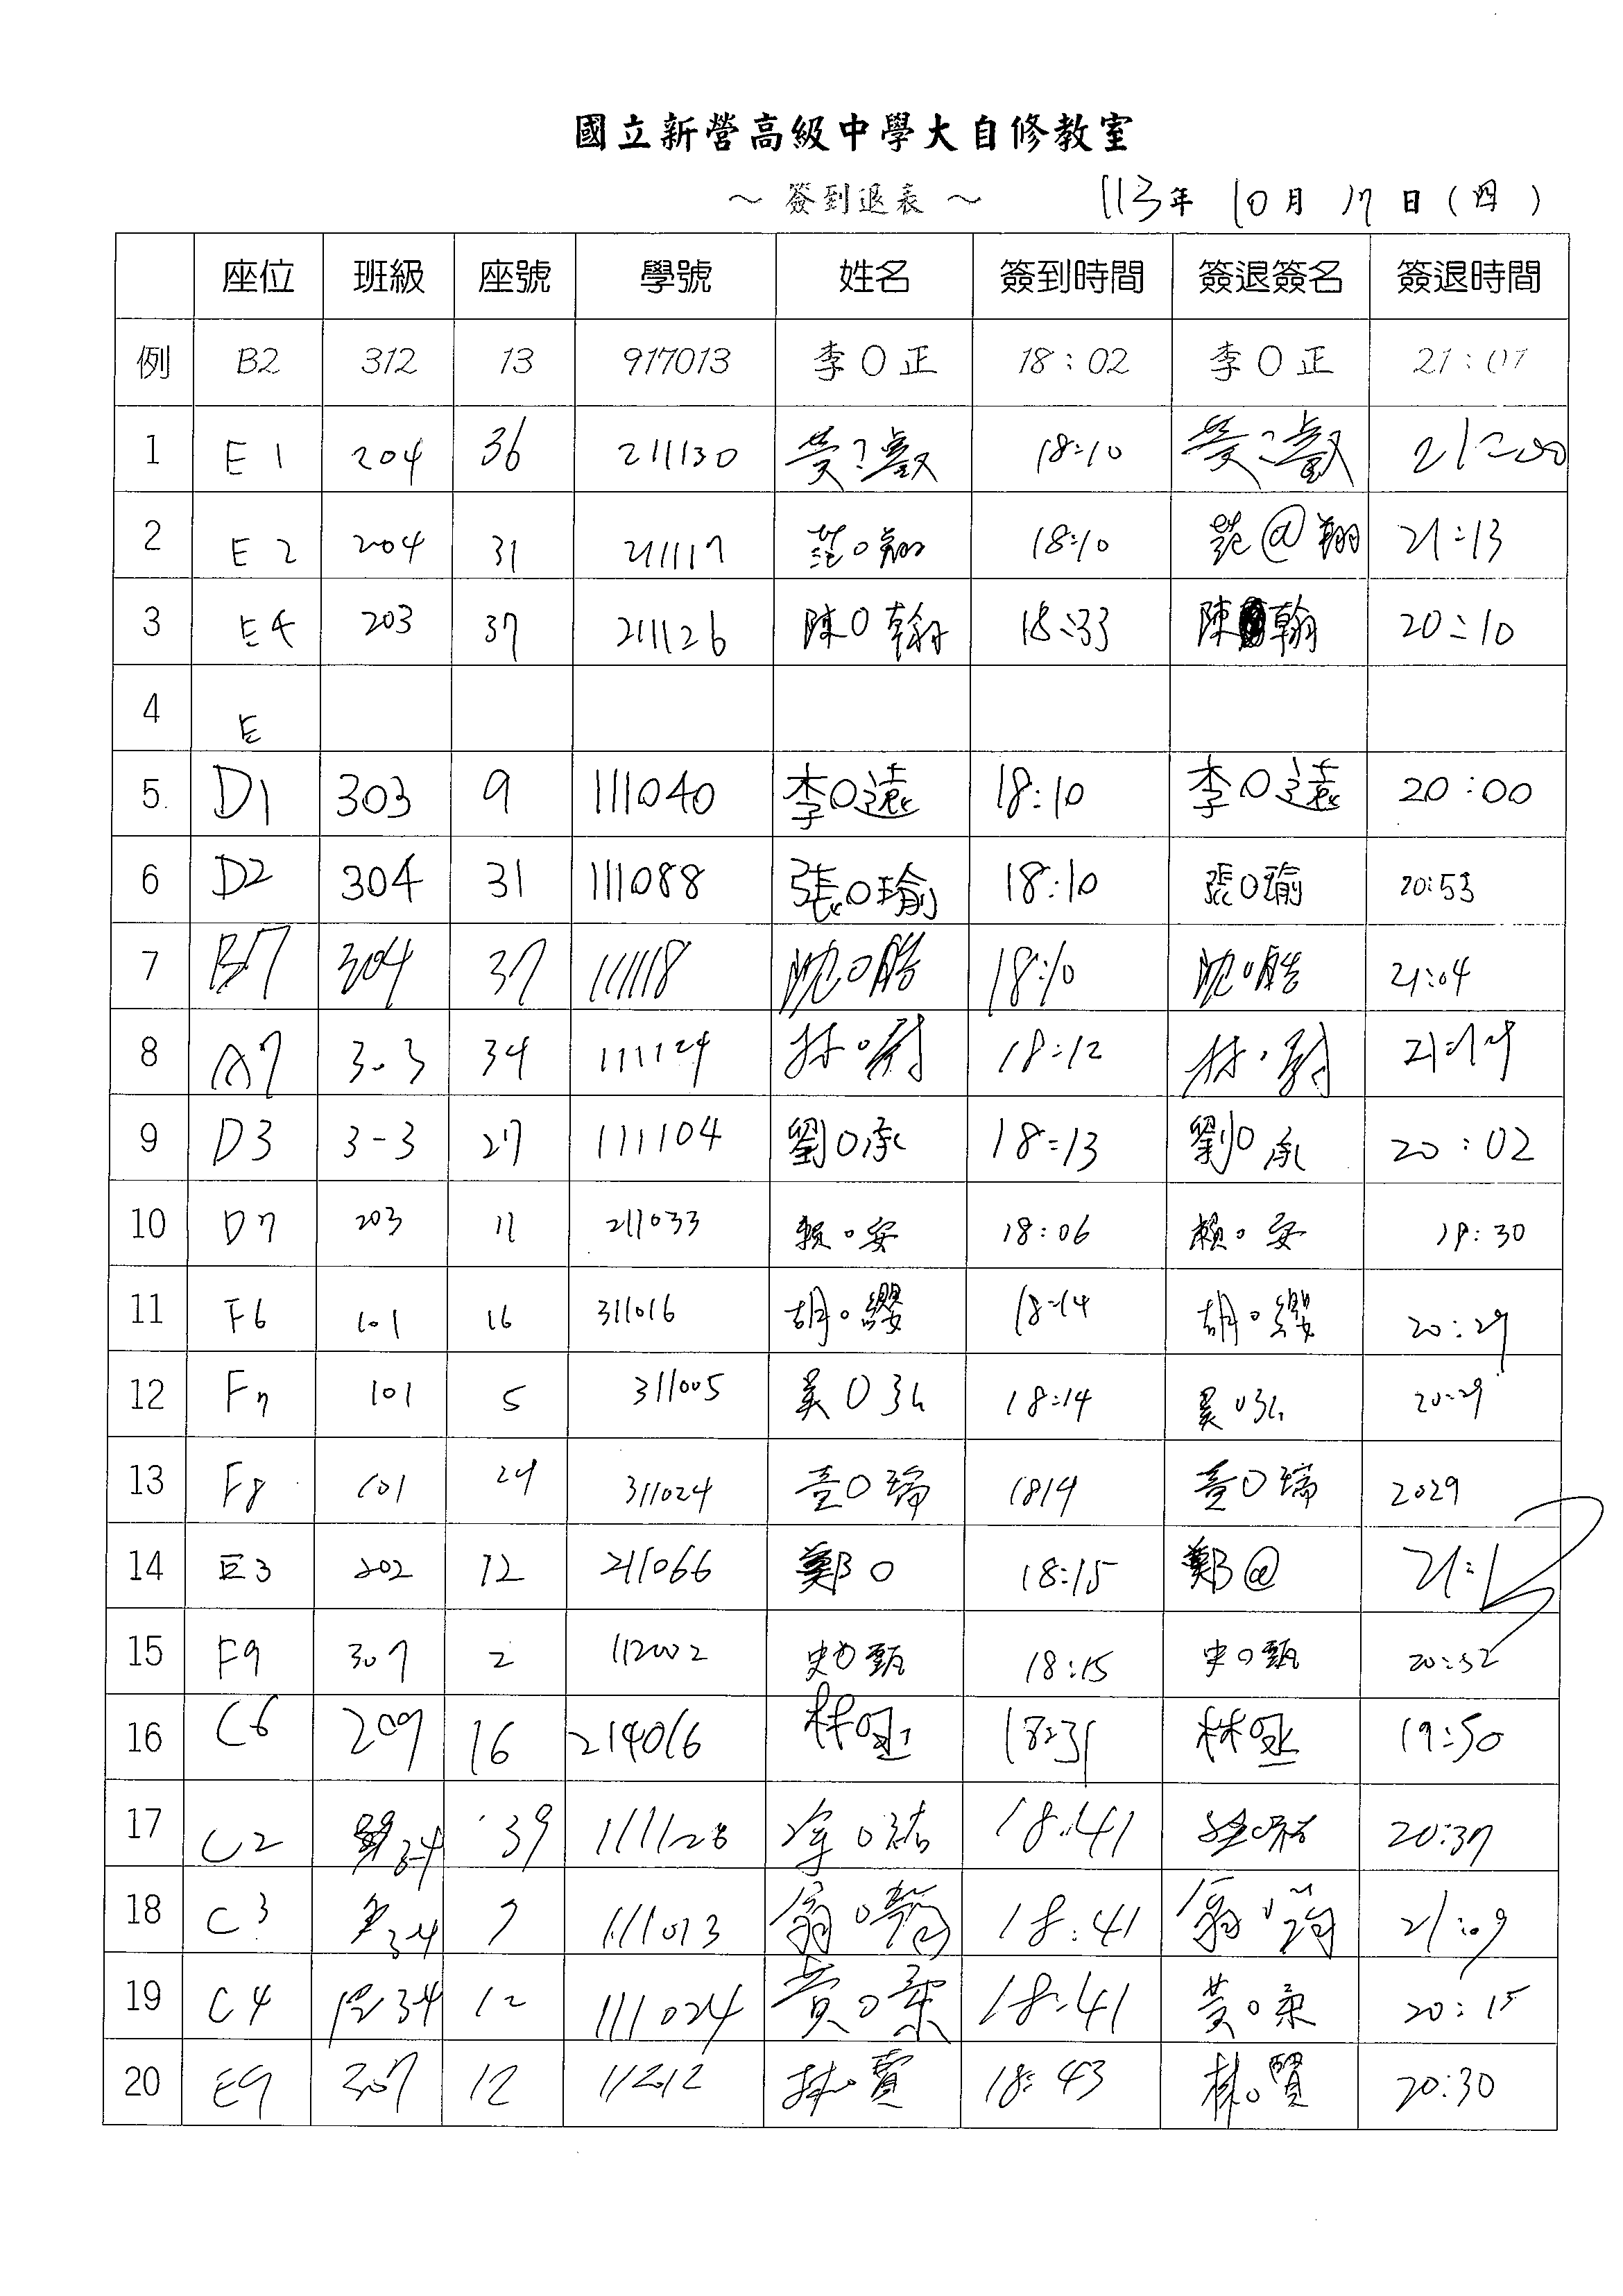 國立新營高級中學大自修教室
～ 簽到退表 ～ 113年 10月 17日(四)
座位 班級 座號 學號 姓名 簽到時間 簽退簽名 簽退時間
例 B2 312 13 917013 李O正 18:02 李O正 21:01
1 E1 204 36 211130 18:10 21:00
2 E2 204 31 211117 范O翔 18:10 范@翔 21:13
3 E4 203 37 211126 陳O翰 18:33 陳翰 20:10
4 E
5 D1 303 9 111040 李O遠 18:10 李O遠 20:00
6 D2 304 31 111088 張O瑜 18:10 張O瑜 20:53
7 B7 304 37 111118 沈O皓 18:10 沈O皓 21:04
8 A7 3-3 34 111124 林O尉 18:12 林O尉
9 D3 3-3 27 111104 劉O承 18:13 劉O承 20:02
10 D7 203 11 211033 賴O安 18:06 賴O安 19:30
11 F6 101 16 311016 胡O纓 18:14 胡O纓 20:29
12 F7 101 5 311005 吳O弘 18:14 吳O弘 20:29
13 F8 101 24 311024 O瑞 1814 O瑞 2029
14 E3 202 12 211066 鄭O 18:15 鄭@ 21:1
15 F9 307 2 112002 史O甄 18:15 史O甄 20:52
16 C6 209 16 214016 林O丞 18:31 林O丞 19:50
17 C2 3-4 39 111128 O祐 18:41 20:37
18 C3 3-4 7 111013 翁O 18:41 翁O 21:09
19 C4 3-4 12 111024 黃O柔 18:41 黃O柔 20:15
20 E9 307 12 11212 林O賢 18:43 林O賢 20:30